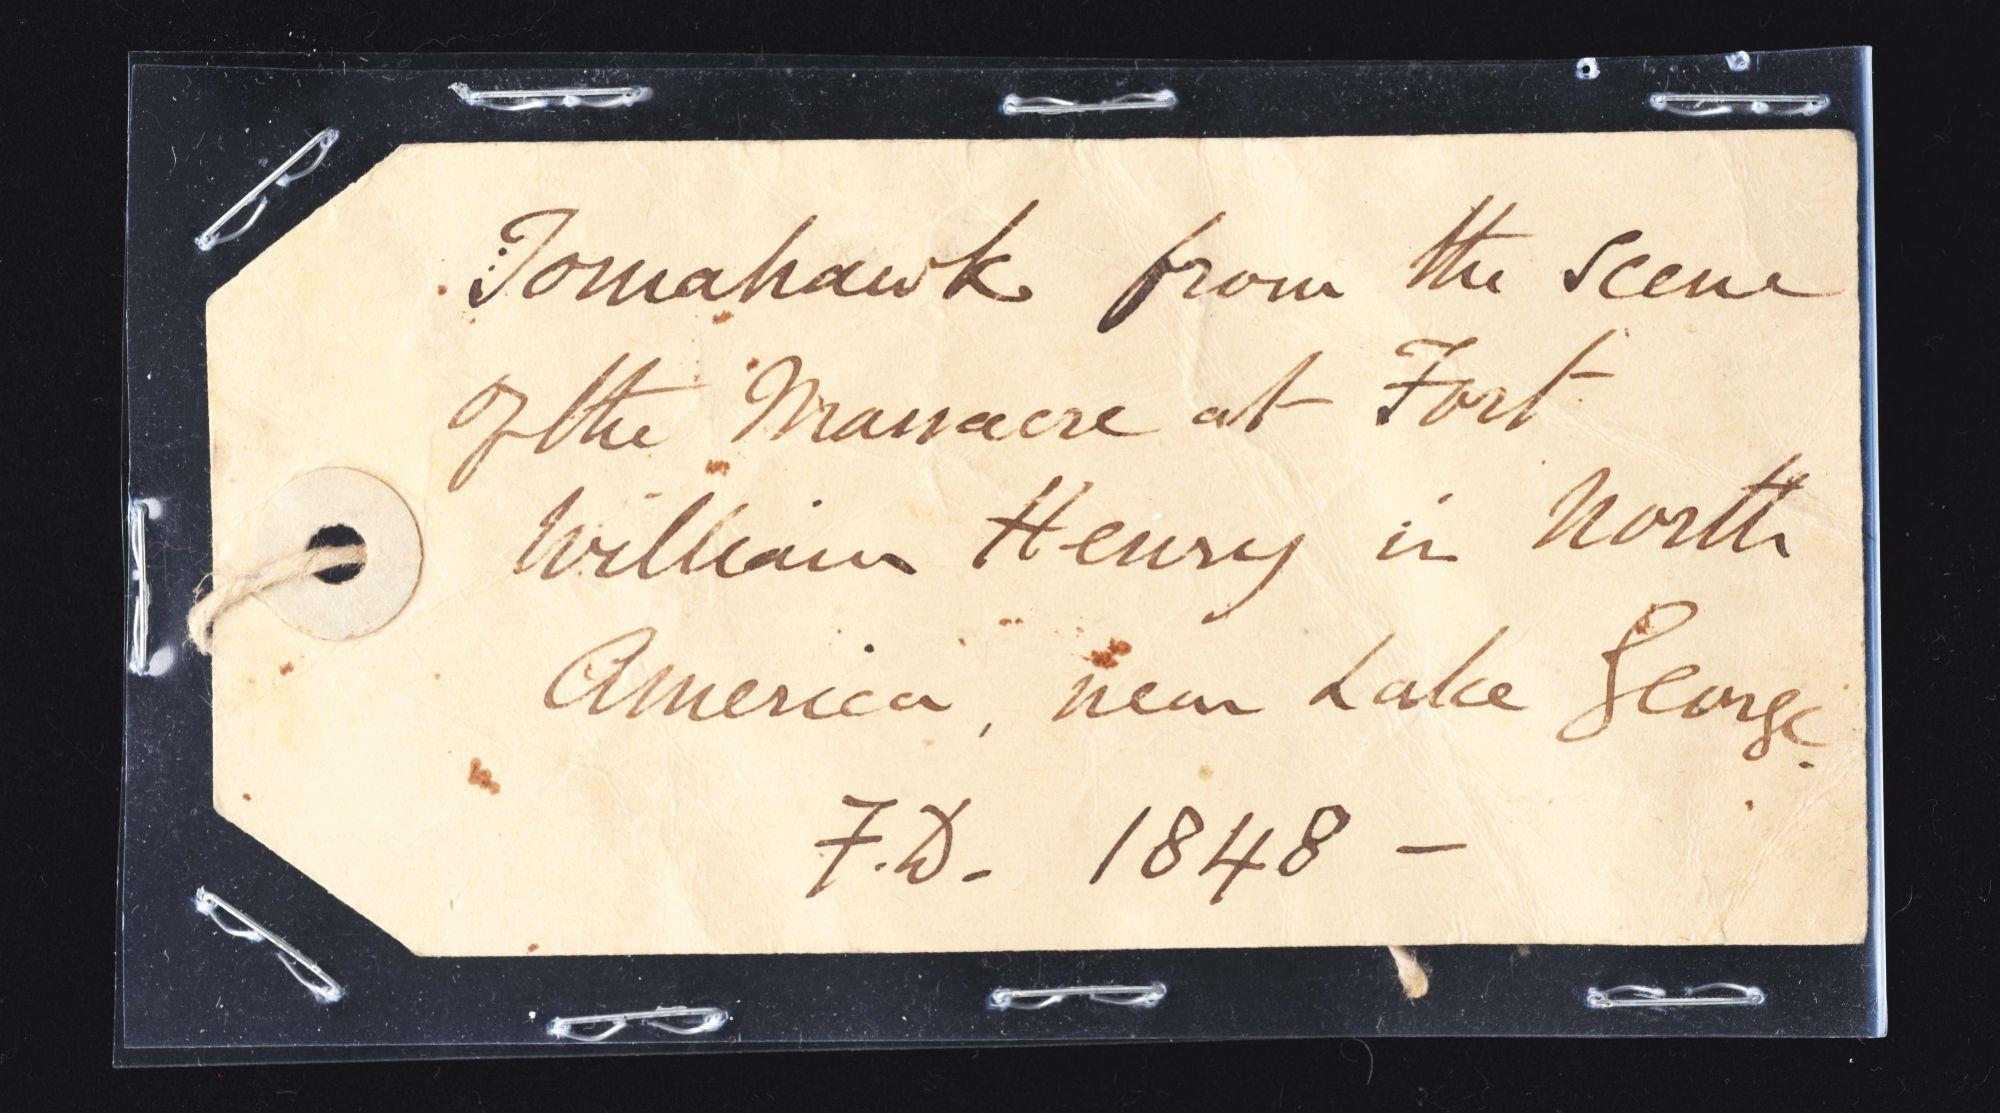 Tomahawk from the scene
of the Massacre at Fort
William Henry in North
America, near Lake George.
F.D. 1848 –